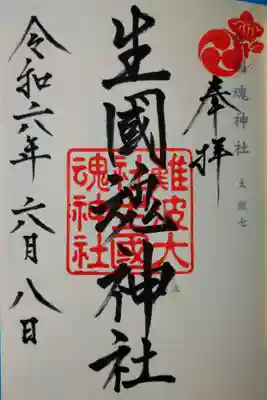 奉拝
生國魂神社
令和六年 六月八日
難波大社生國魂神社
魂神社